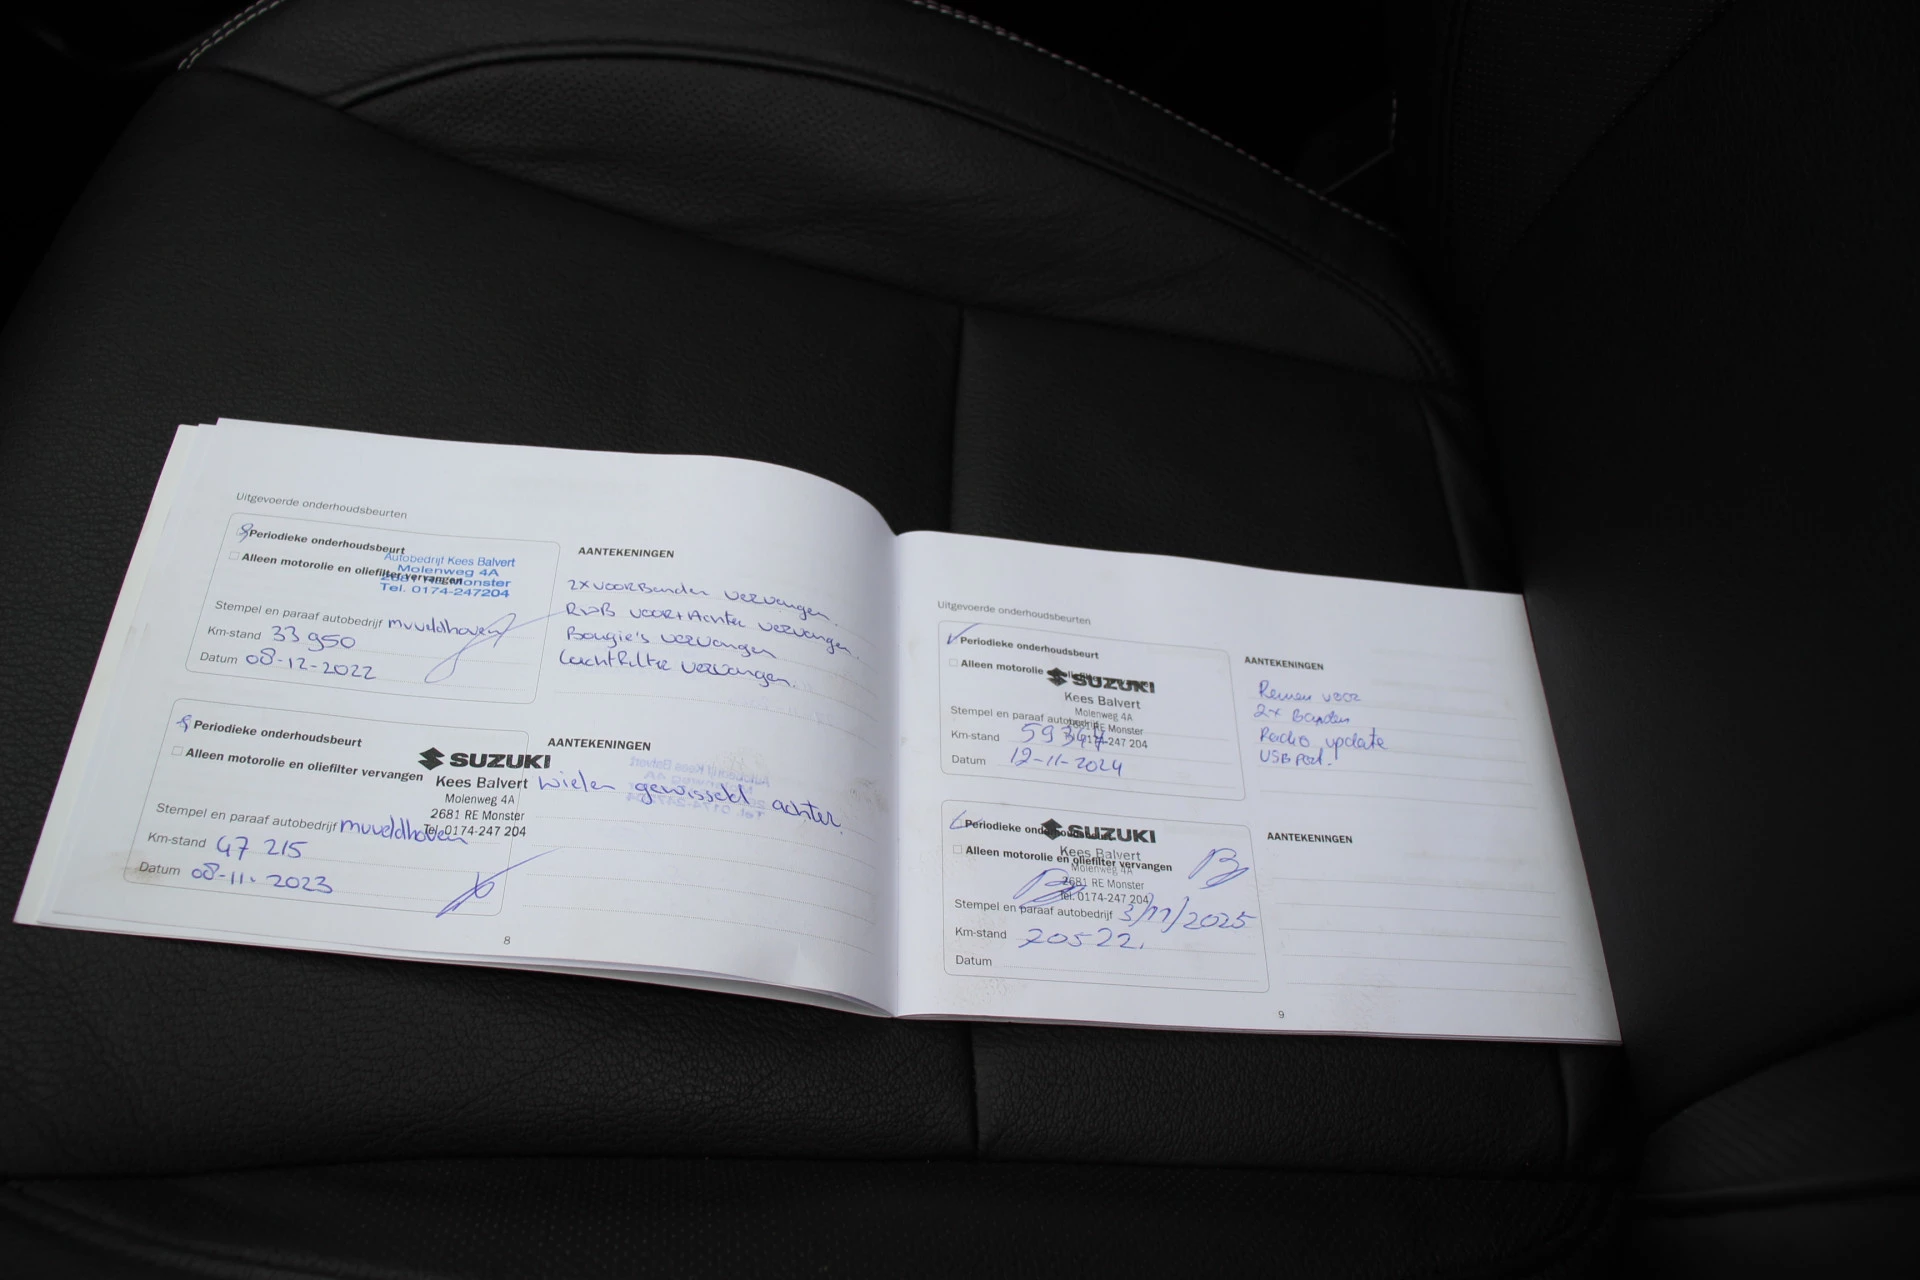 Uitgevoerde onderhoudsbeurten
Periodieke onderhoudsbeurt
Alleen motorolie en oliefilter vervangen
Autobedrijf Kees Balvert
Molenweg 4A
2681 RE Monster
Tel. 0174-247204
Stempel en paraaf autobedrijf muveldhoven
Km-stand 33950
Datum 08-12-2022
AANTEKENINGEN
2x voorbanden vervangen.
voor + Achter vervangen.
Bougie's vervangen
Luchtfilter vervangen.
Periodieke onderhoudsbeurt
Alleen motorolie en oliefilter vervangen
SUZUKI
Kees Balvert
Molenweg 4A
2681 RE Monster
Tel. 0174-247 204
Stempel en paraaf autobedrijf muveldhoven
Km-stand 47 215
Datum 08-11-2023
AANTEKENINGEN
wielen gewisseld achter.
8
Uitgevoerde onderhoudsbeurten
Periodieke onderhoudsbeurt
Alleen motorolie
SUZUKI
Kees Balvert
Molenweg 4A
2681 RE Monster
Tel. 0174-247 204
Stempel en paraaf autobedrijf
Km-stand
Datum 12-11-2024
AANTEKENINGEN
Remen voor
2x Banden
Radio update
USB
Periodieke onderhoudsbeurt
SUZUKI
Kees Balvert
Alleen motorolie en oliefilter vervangen
Molenweg 4A
2681 RE Monster
Tel. 0174-247 204
Stempel en paraaf autobedrijf 3/11/2025
Km-stand 70522.
Datum
AANTEKENINGEN
9